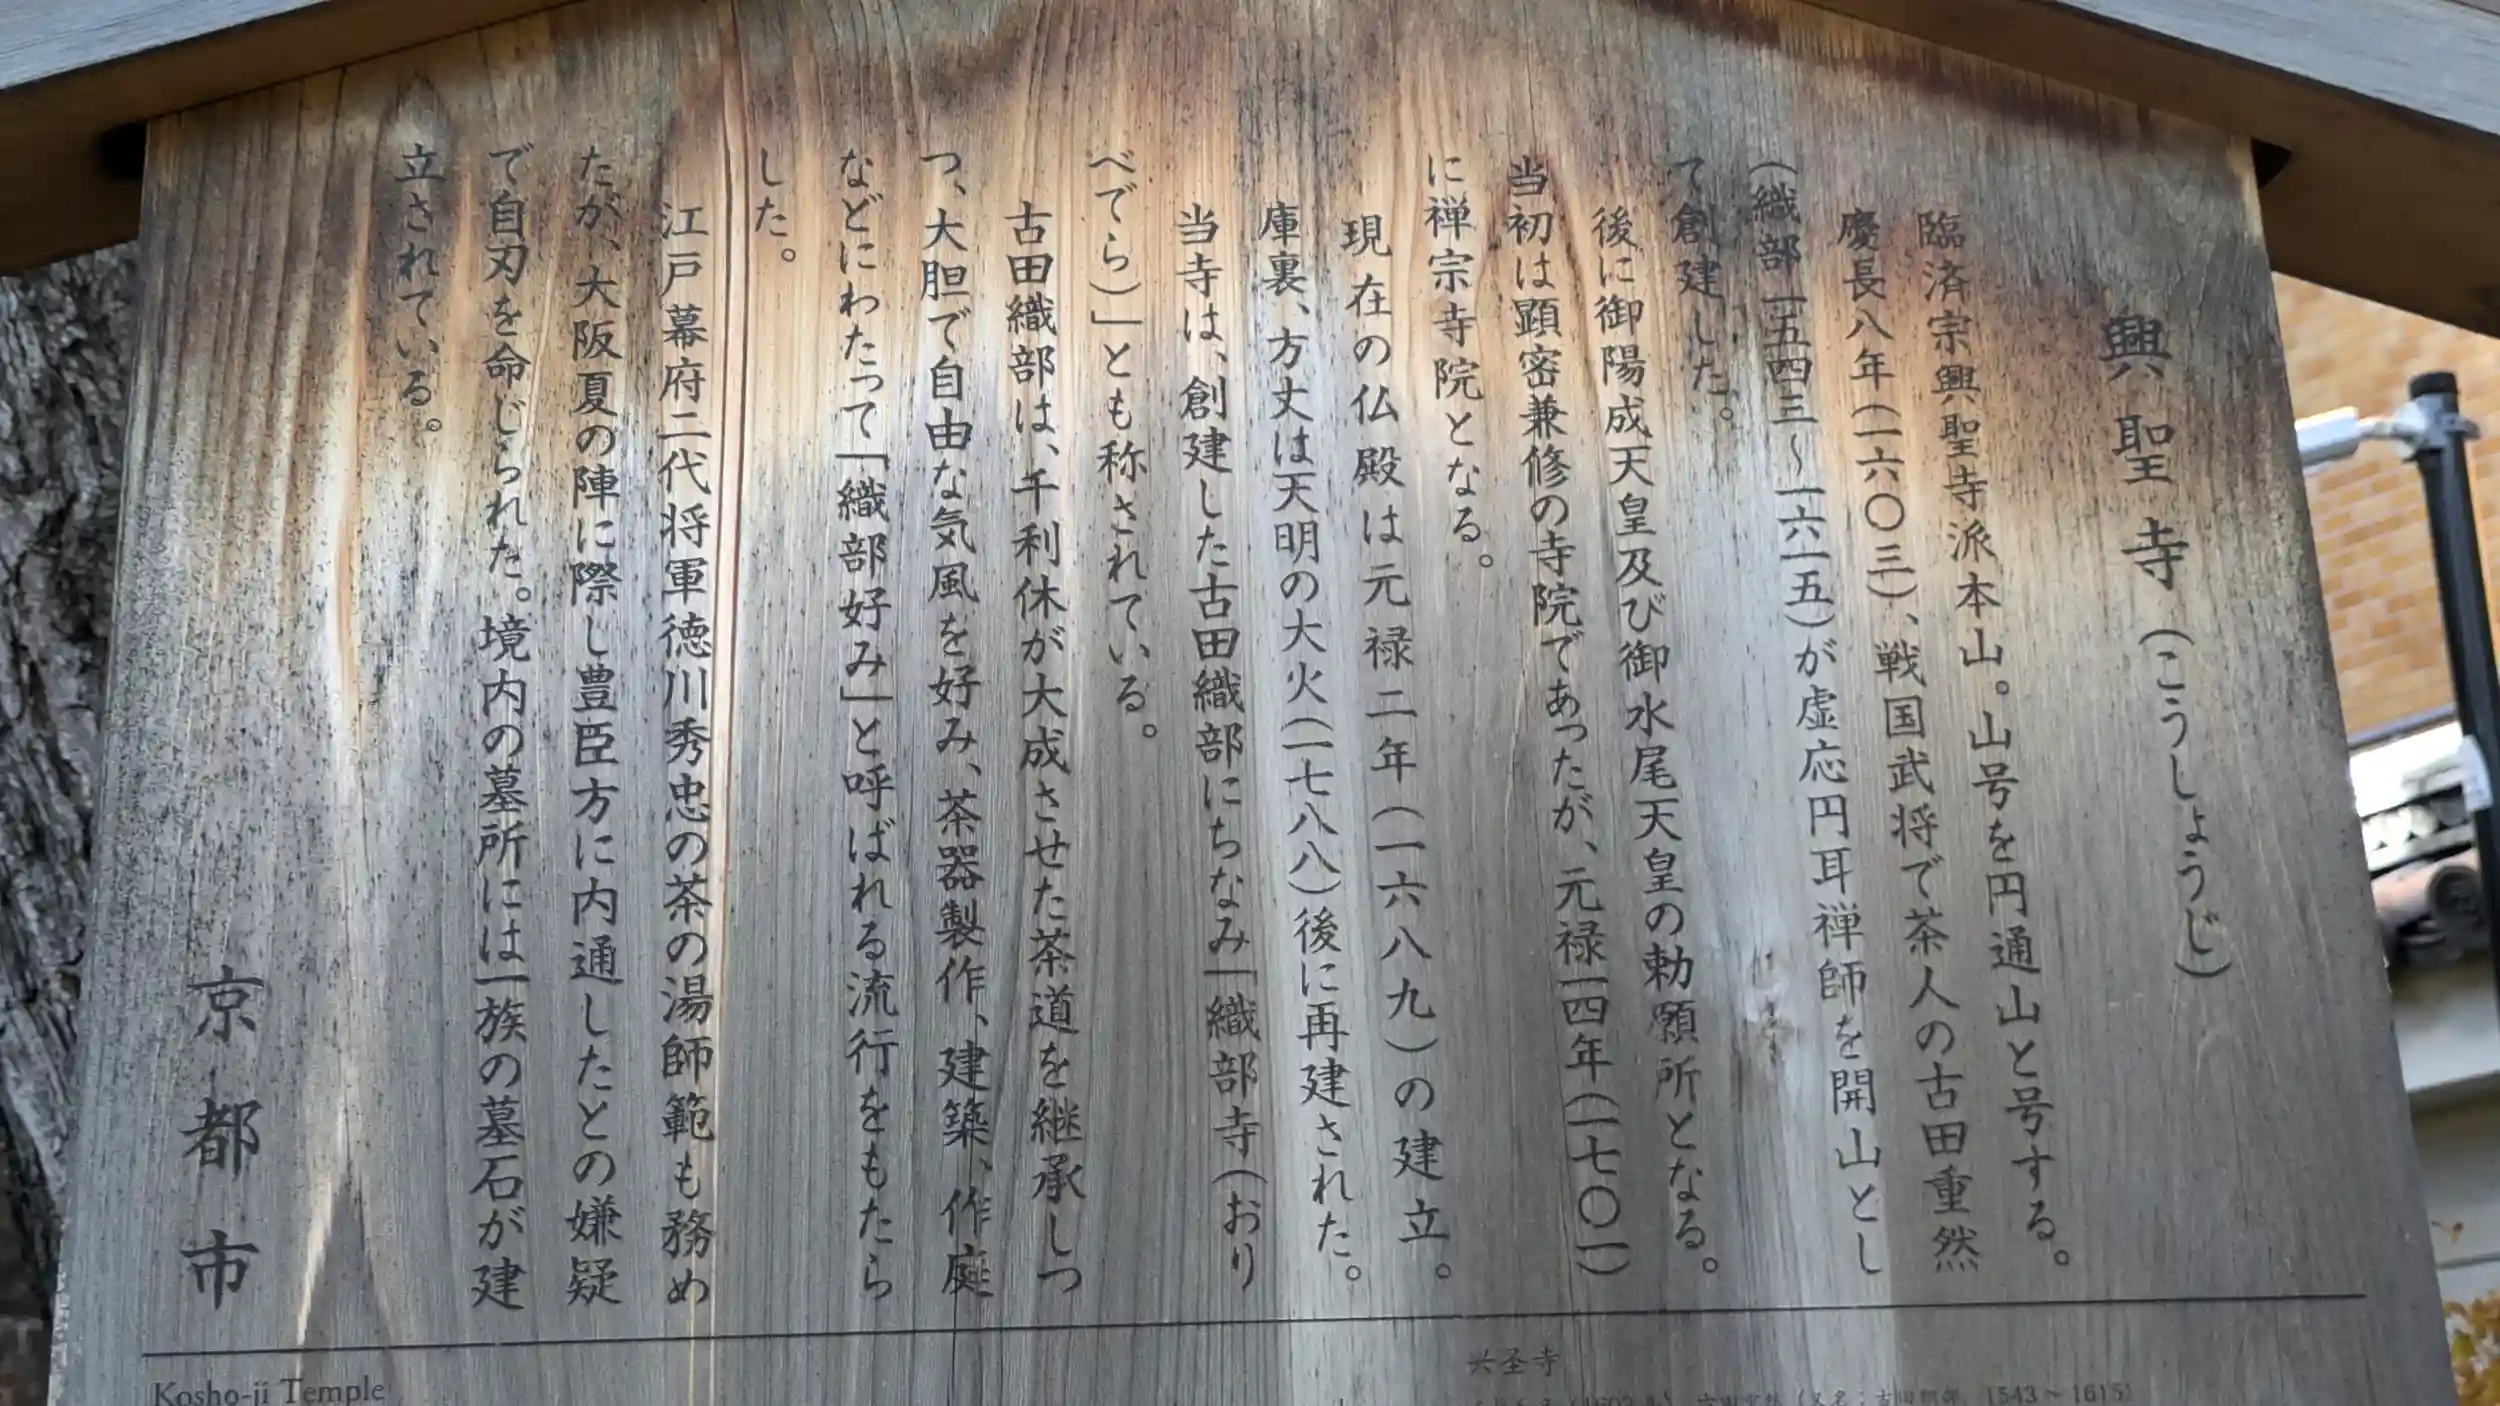 興聖寺(こうしょうじ)
臨済宗興聖寺派本山。山号を円通山と号する。
慶長八年(一六〇三)、戦国武将で茶人の古田重然
(織部一五四三〜一六一五)が虚応円耳禅師を開山とし
て創建した。
後に御陽成天皇及び御水尾天皇の勅願所となる。
当初は顕密兼修の寺院であったが、元禄一四年(一七〇一)
に禅宗寺院となる。
現在の仏殿は元禄二年(一六八九)の建立。
庫裏、方丈は天明の大火(一七八八)後に再建された。
当寺は、創建した古田織部にちなみ「織部寺(おり
べでら)」とも称されている。
古田織部は、千利休が大成させた茶道を継承しつ
つ、大胆で自由な気風を好み、茶器製作、建築、作庭
などにわたって「織部好み」と呼ばれる流行をもたら
した。
江戸幕府二代将軍徳川秀忠の茶の湯師範も務め
たが、大阪夏の陣に際し豊臣方に内通したとの嫌疑
で自刃を命じられた。境内の墓所には一族の墓石が建
立されている。
京都市
Kosho-ji Temple
兴圣寺
1543～1615)